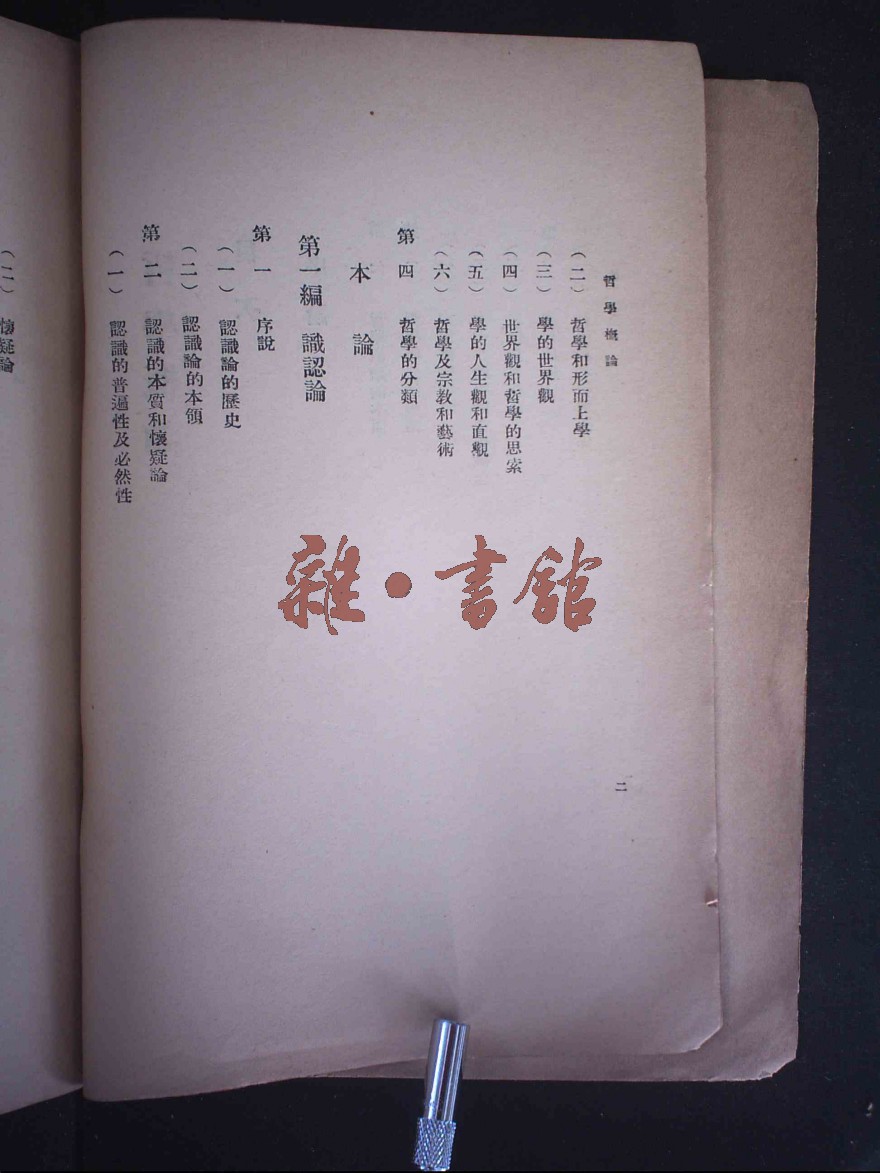 哲學概論
（二）　哲學和形而上學
（三）　學的世界觀
（四）　世界觀和哲學的思索
（五）　學的人生觀和直觀
（六）　哲學及宗教和藝術
第四　哲學的分類
本論
第一編　識認論
第一　序說
（一）　認識論的歷史
（二）　認識論的本領
第二　認識的本質和懷疑論
（一）　認識的普遍性及必然性
二
（二）　懷疑論
雜·書館